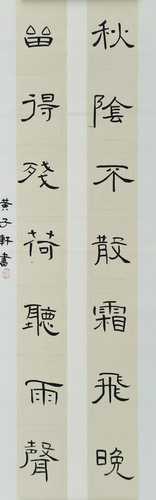 秋陰不散霜飛晚
留得殘荷聽雨聲
黃子軒書